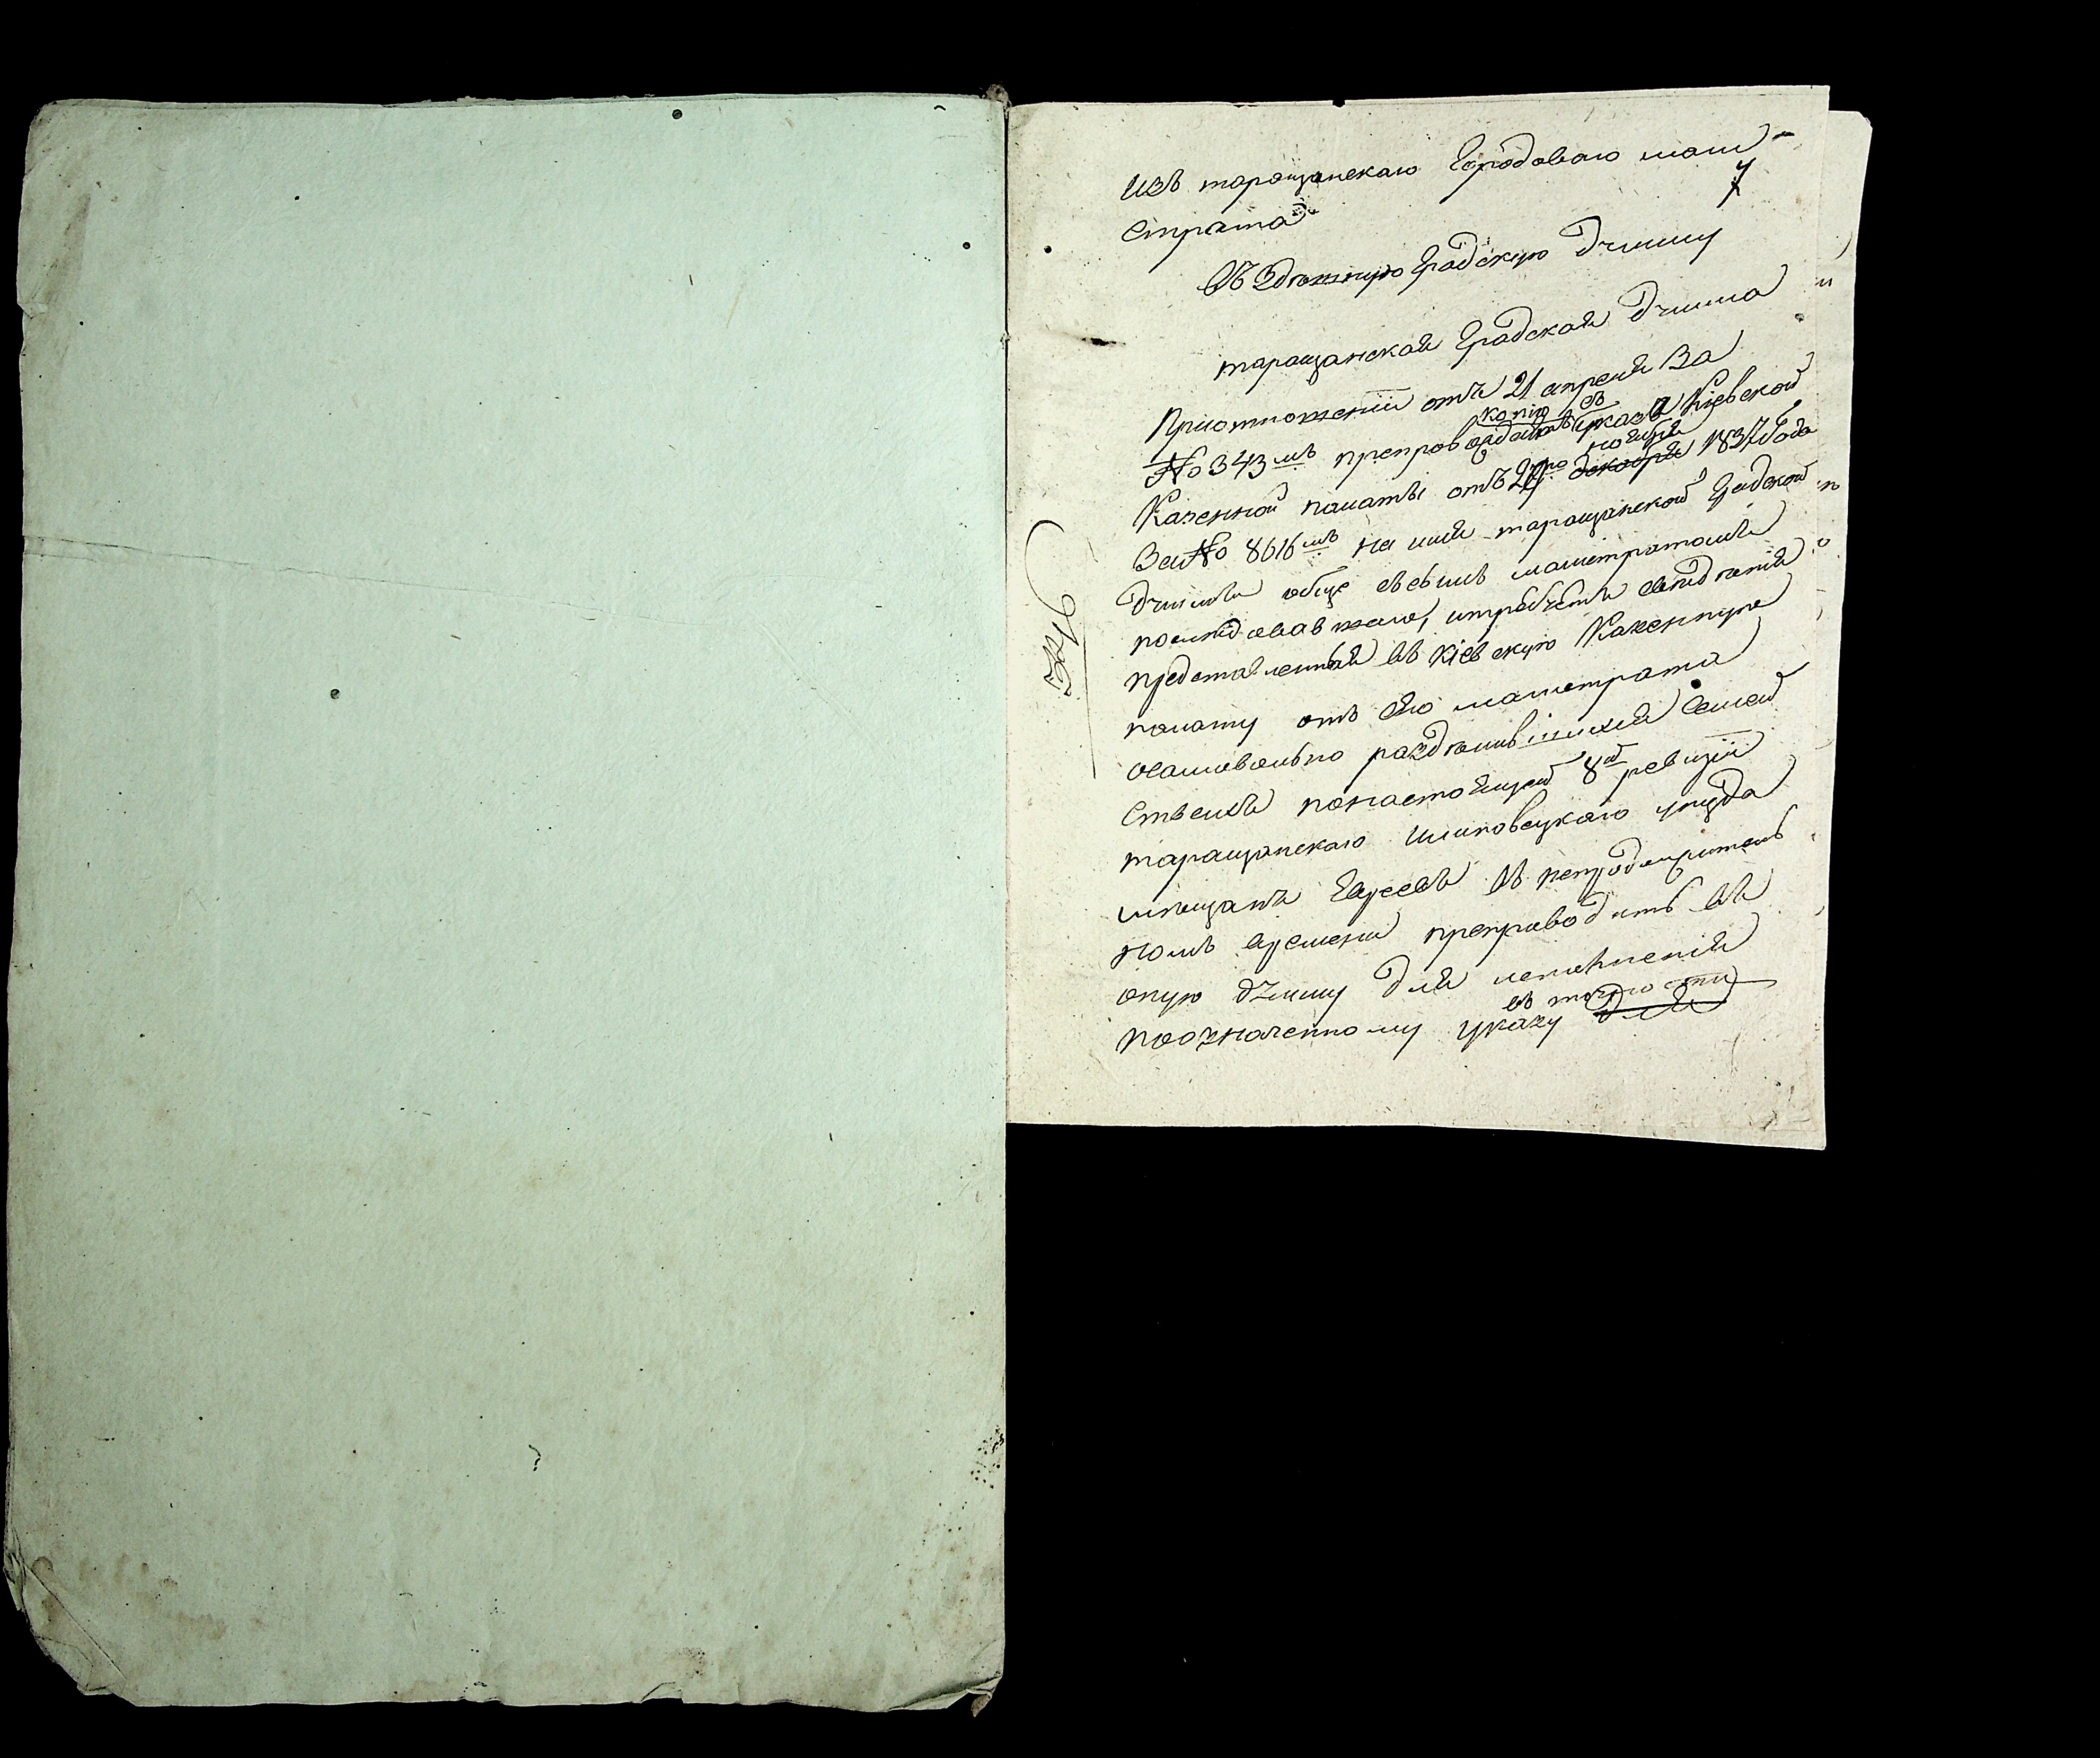 Изъ таращанскаго Городоваго маги-
7
страта
Въ Здѣшнюю Градскую Думу
таращанская Градская Дума
Приотношеніи отъ 21 апреля За
копію съ
№ 343мъ препровождала указа Кіевской
ноября
Казенной палаты отъ 29го декабря 1837 Года
За № 8616мъ на имя таращанской Градской
Думы обще съ симъ магистратомъ
последовавшаго, и требуетъ сведенія
представленныя въ Кіевскую Казенную
палату отъ сего магистрата
осамовольно разделившихся семей
ствахъ понастоящей 8й ревизіи
таращанскаго и липовецкаго уезда
мещанъ Евреевъ въ непродолжитель
номъ времени препроводить въ
оную думу Для исполненія
въ точности
Поозначенному указу Для
346